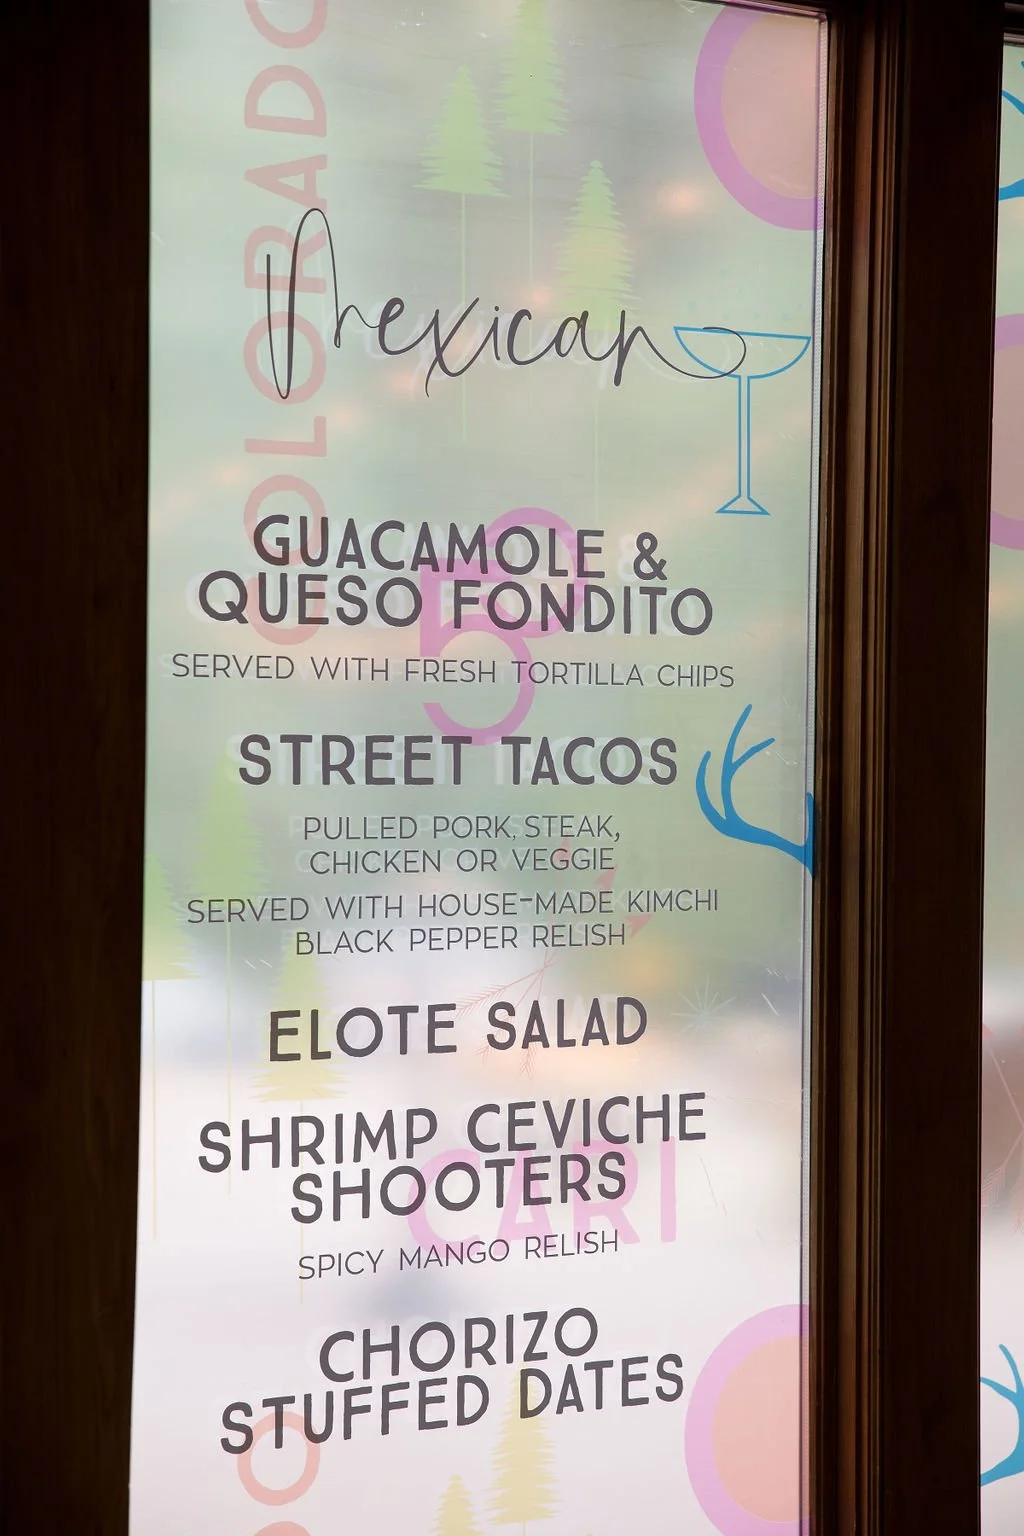 COLORADO
Mexican
GUACAMOLE &
QUESO FONDITO
SERVED WITH FRESH TORTILLA CHIPS
5
STREET TACOS
PULLED PORK, STEAK,
CHICKEN OR VEGGIE
SERVED WITH HOUSE-MADE KIMCHI
BLACK PEPPER RELISH
ELOTE SALAD
SHRIMP CEVICHE
SHOOTERS
CARI
SPICY MANGO RELISH
CHORIZO
STUFFED DATES